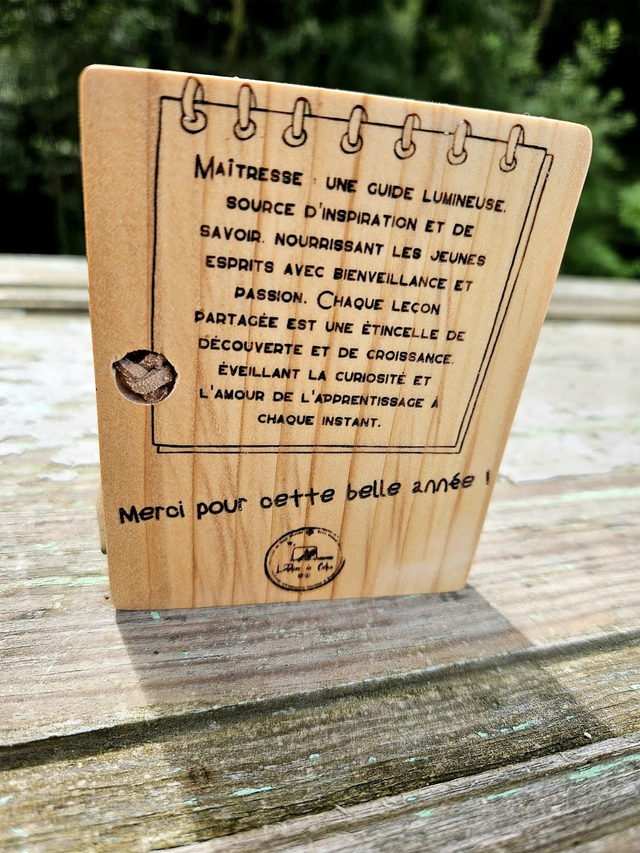 Maîtresse : une guide lumineuse,
source d'inspiration et de
savoir, nourrissant les jeunes
esprits avec bienveillance et
passion. Chaque leçon
partagée est une étincelle de
découverte et de croissance,
éveillant la curiosité et
l'amour de l'apprentissage à
chaque instant.
Merci pour cette belle année !